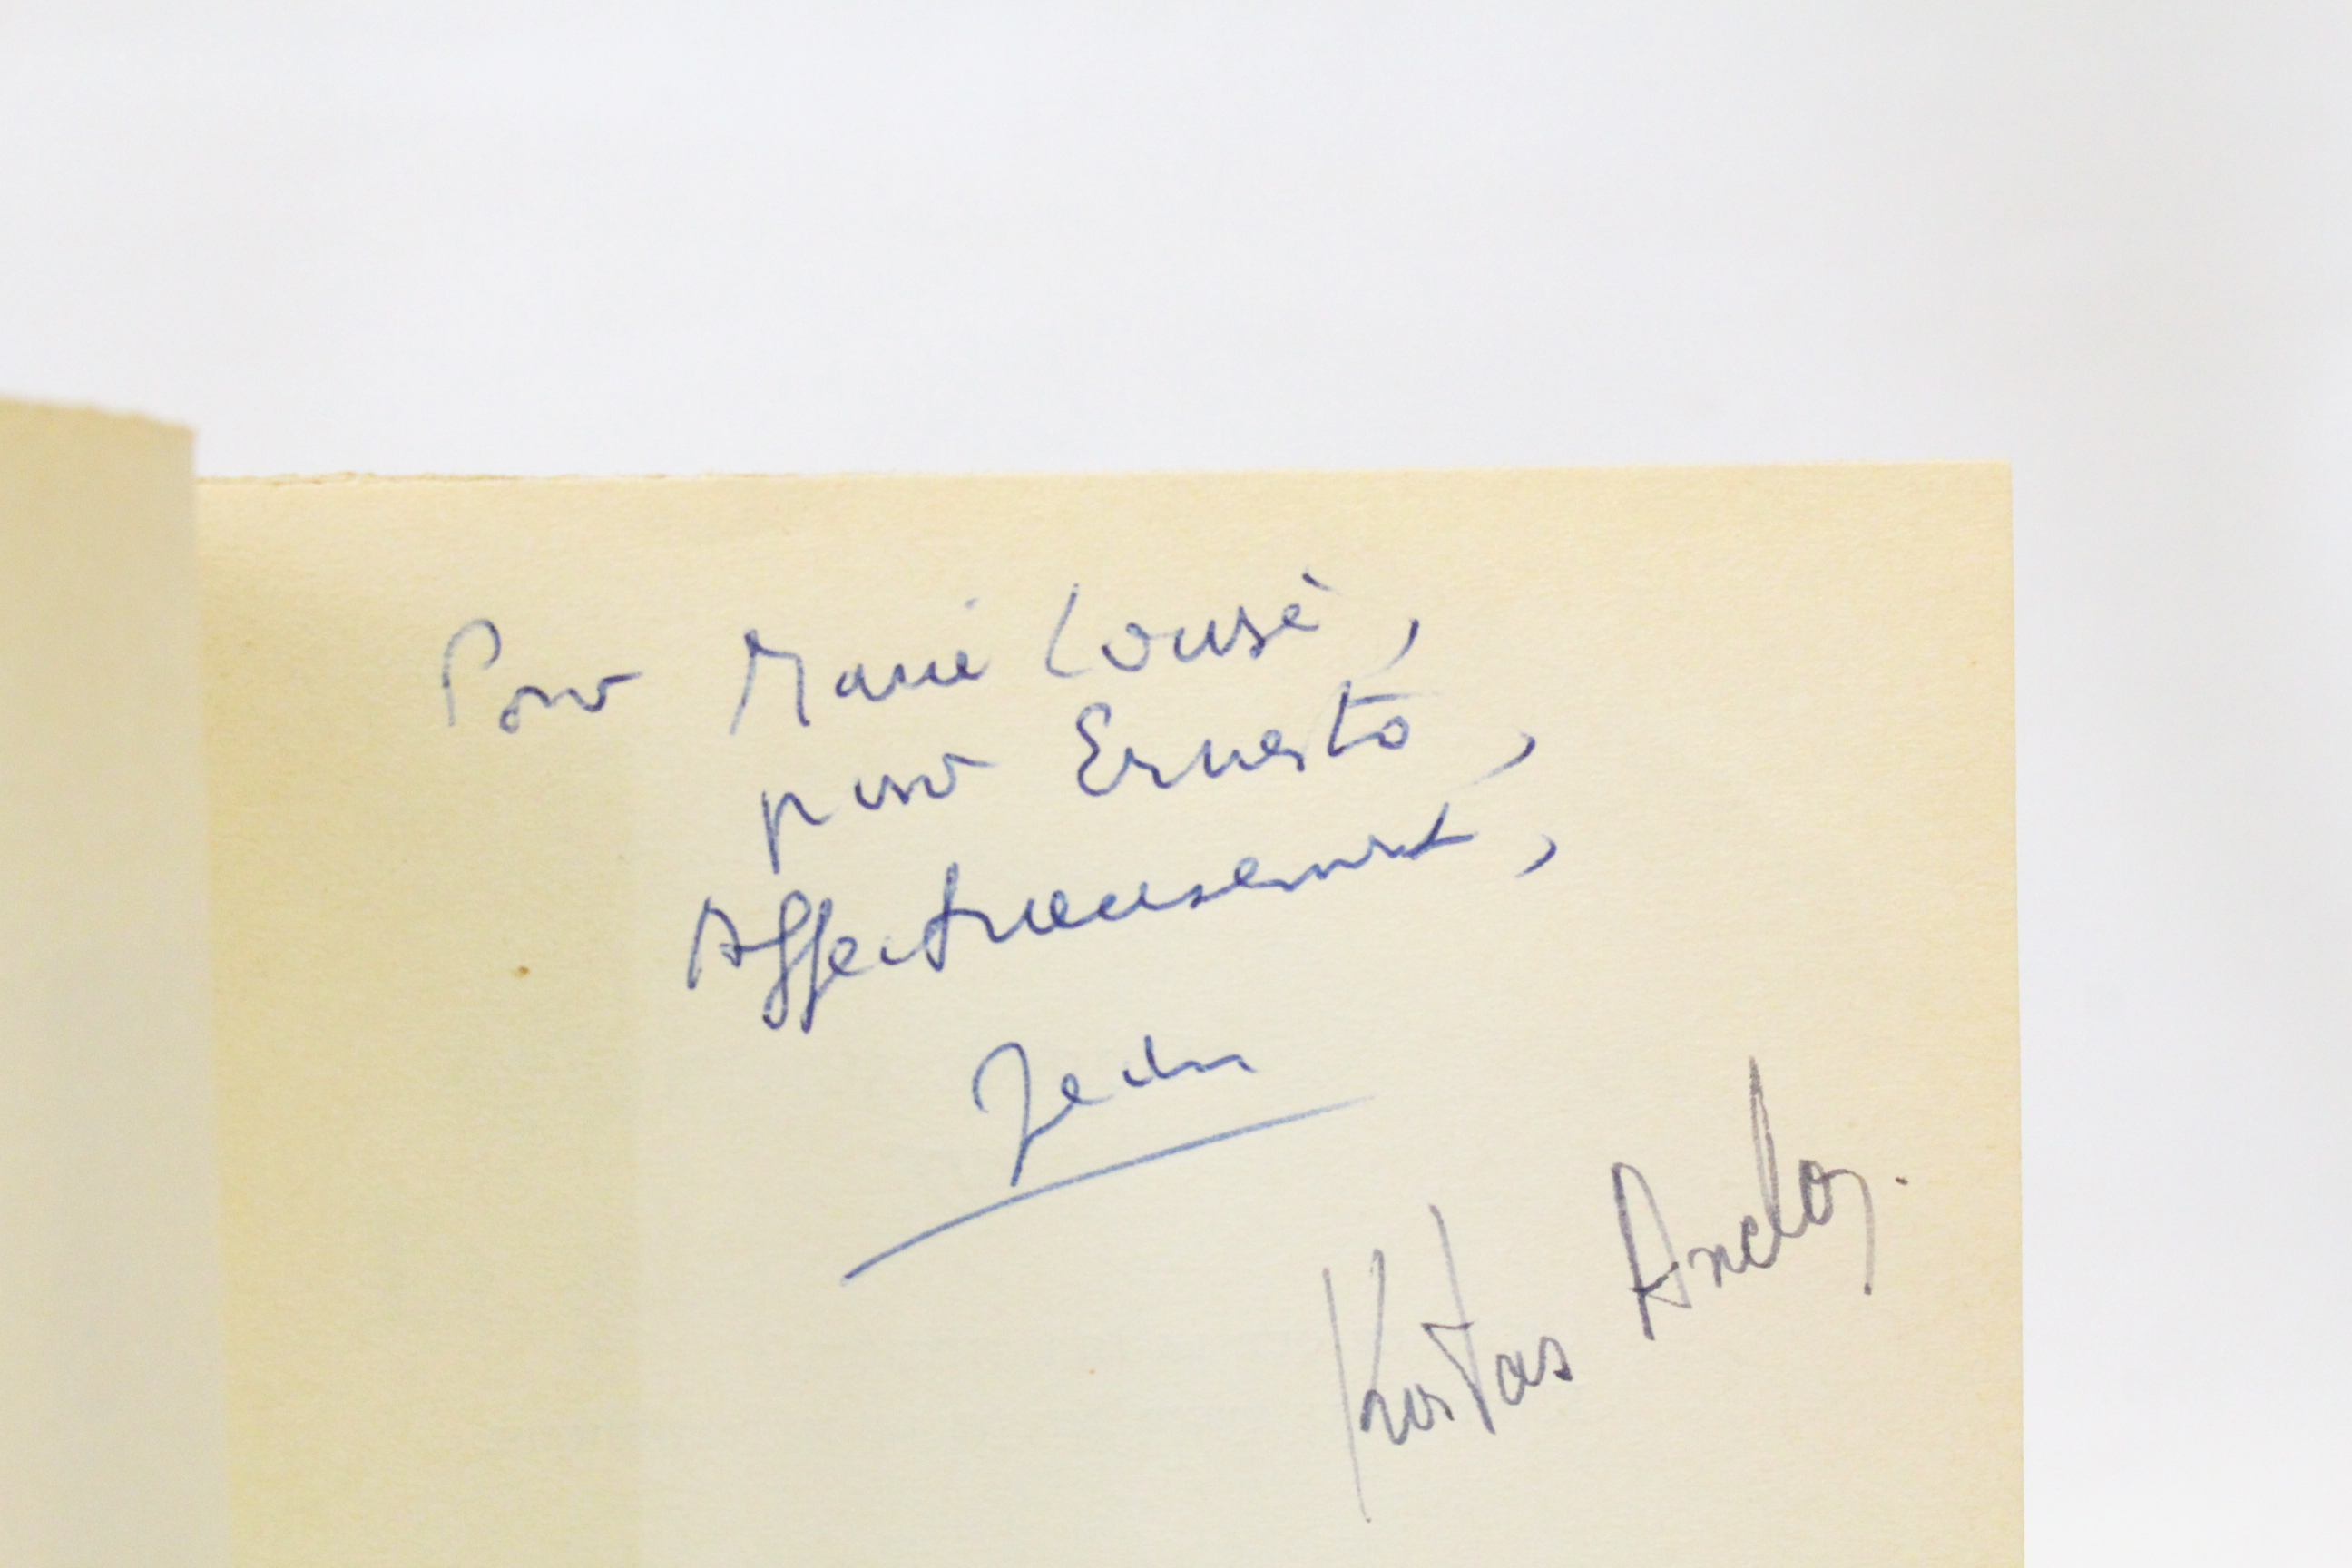 Pour Marie Louise,
pour Ernesto,
Affectueusement,
Jean
Kostas Axelos.